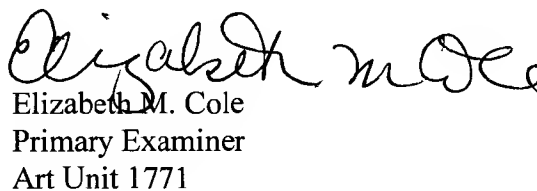 Elizabeth M Cole
Elizabeth M. Cole
Primary Examiner
Art Unit 1771